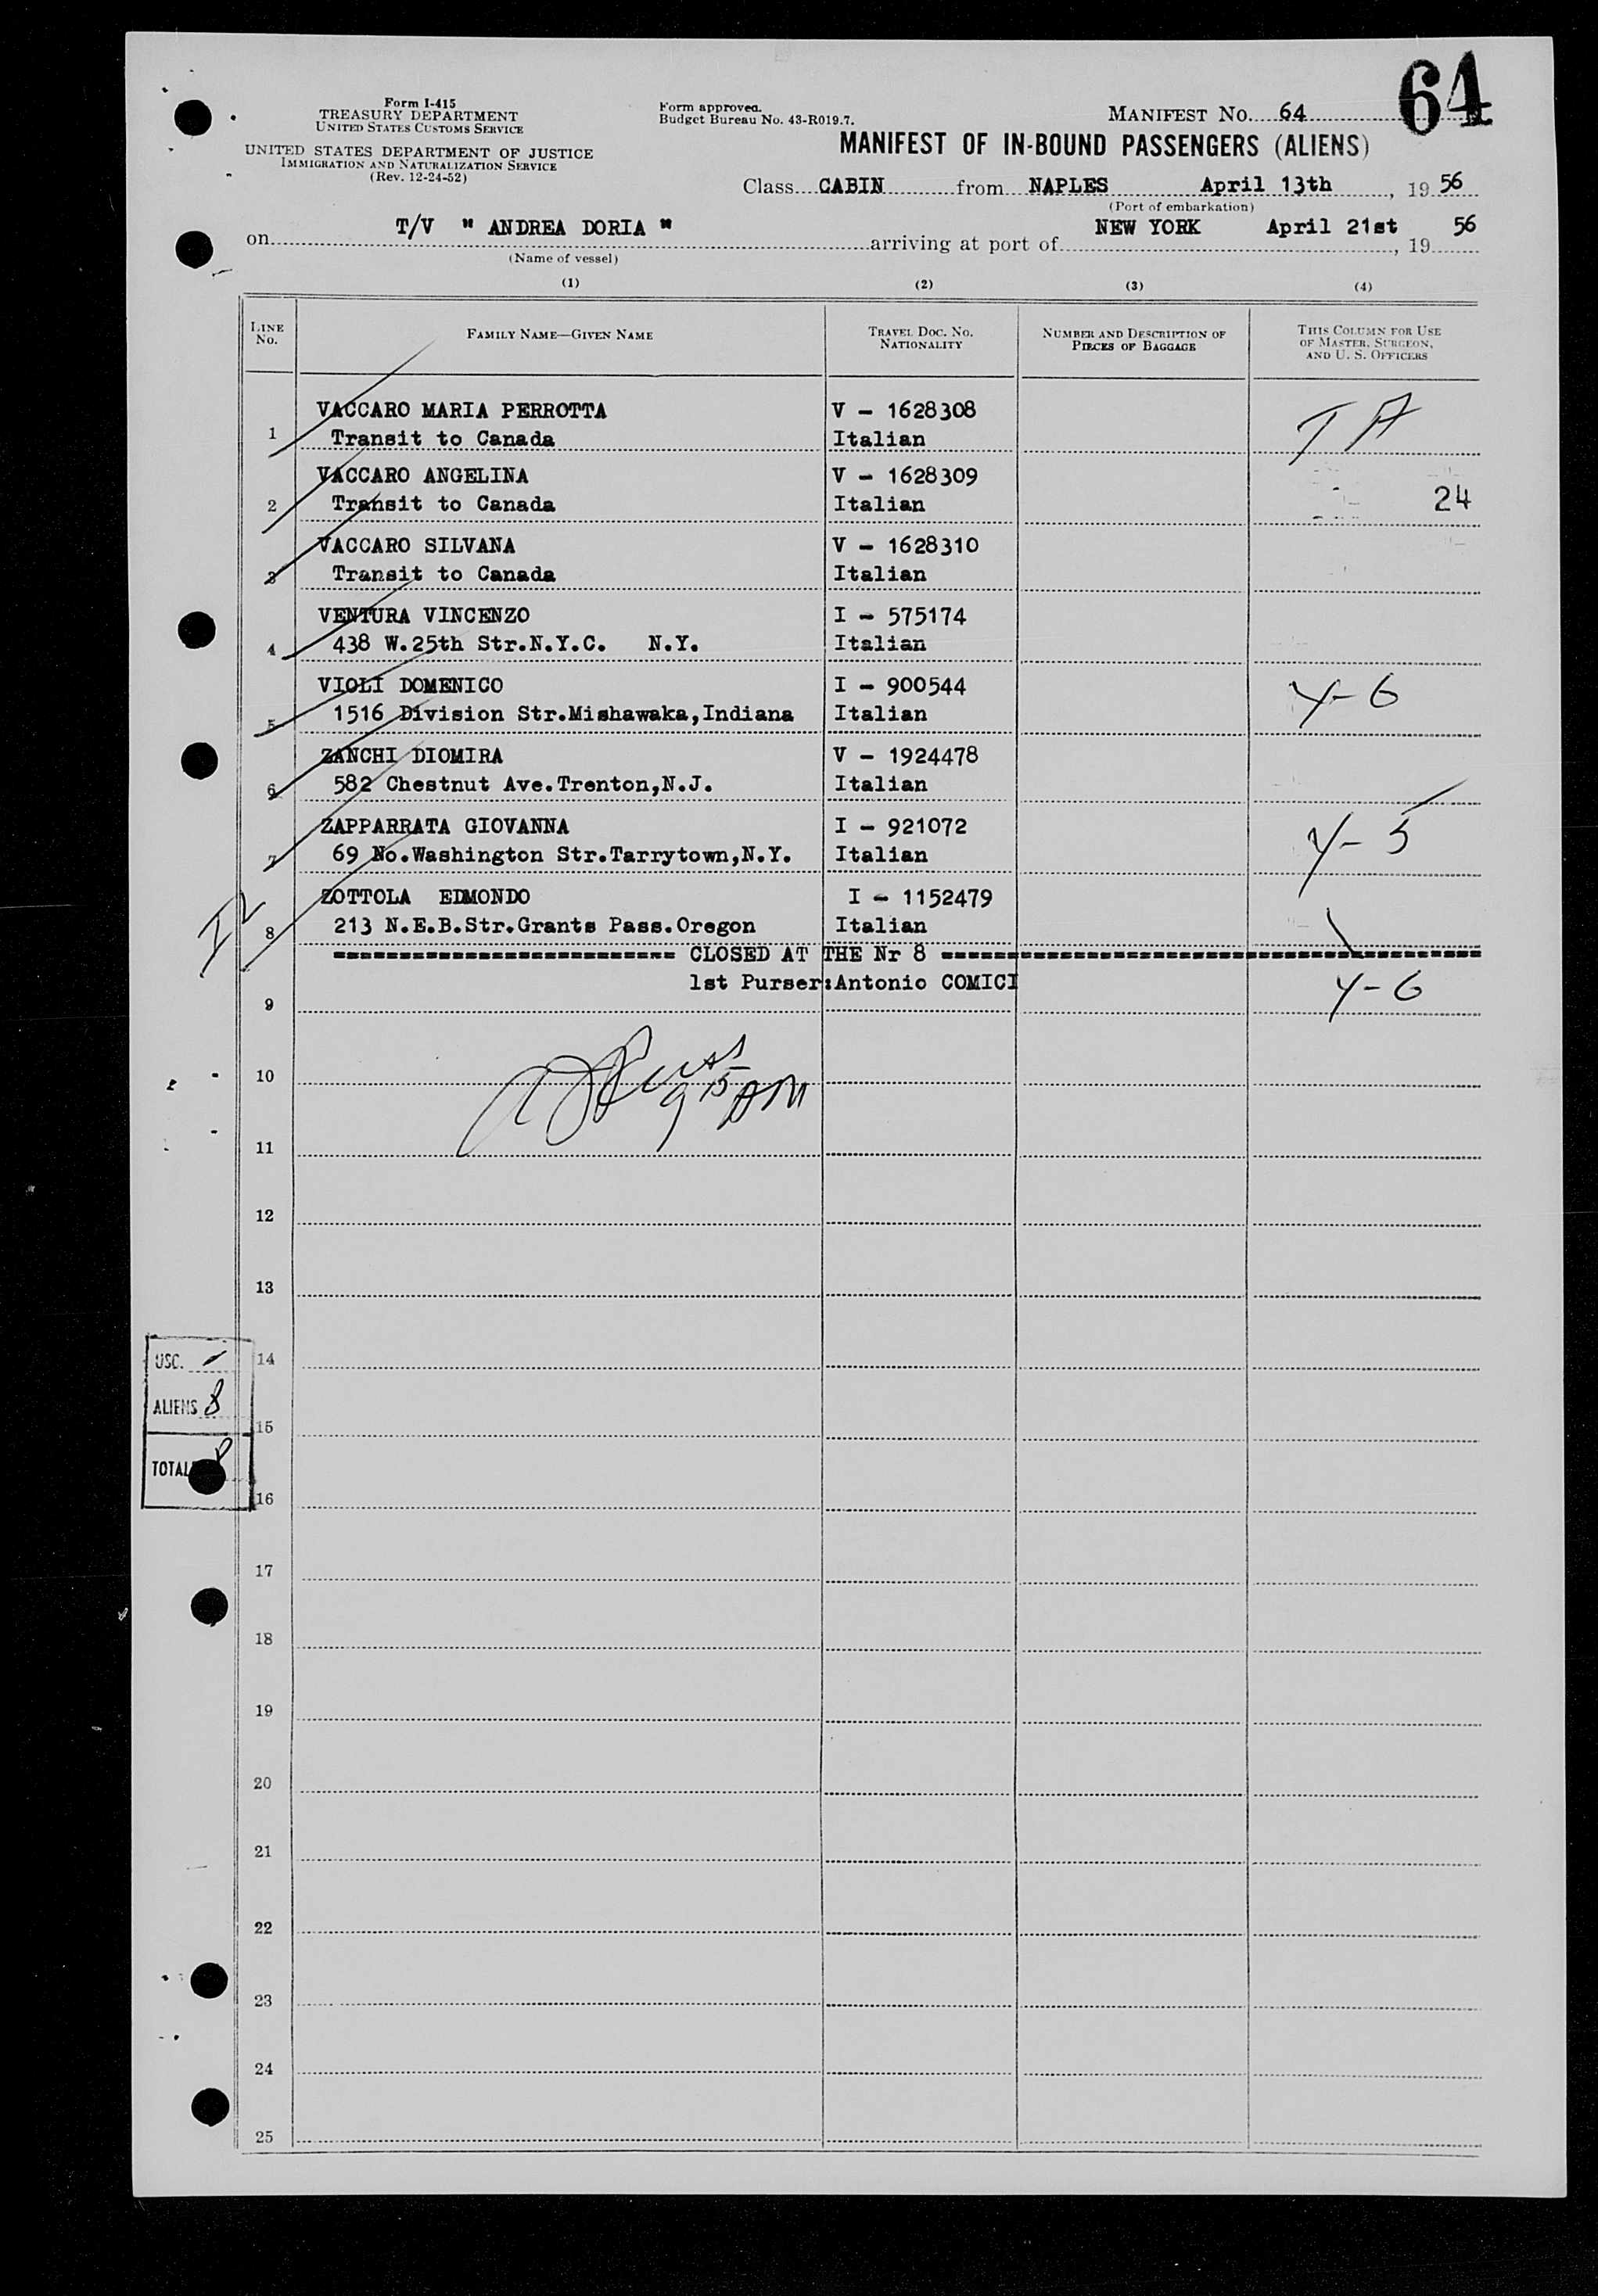 64
Form I-415
TREASURY DEPARTMENT
UNITED STATES CUSTOMS SERVICE
UNITED STATES DEPARTMENT OF JUSTICE
IMMIGRATION AND NATURALIZATION SERVICE
(Rev. 12-24-52)
Form approved.
Budget Bureau No. 43-R019.7.
MANIFEST NO. 64
MANIFEST OF IN-BOUND PASSENGERS (ALIENS)
Class CABIN from NAPLES April 13th, 19 56
(Port of embarkation)
on T/V " ANDREA DORIA " arriving at port of NEW YORK April 21st, 19 56
(Name of vessel)
(1) (2) (3) (4)
LINE NO. FAMILY NAME—GIVEN NAME TRAVEL DOC. NO. NATIONALITY NUMBER AND DESCRIPTION OF PIECES OF BAGGAGE THIS COLUMN FOR USE OF MASTER, SURGEON, AND U. S. OFFICERS
VACCARO MARIA PERROTTA V - 1628308
1 Transit to Canada Italian
VACCARO ANGELINA V - 1628309
2 Transit to Canada Italian 24
VACCARO SILVANA V - 1628310
3 Transit to Canada Italian
VENTURA VINCENZO I - 575174
4 438 W.25th Str.N.Y.C. N.Y. Italian
VIOLI DOMENICO I - 900544
5 1516 Division Str.Mishawaka,Indiana Italian
ZANCHI DIOMIRA V - 1924478
6 582 Chestnut Ave.Trenton,N.J. Italian
ZAPPARRATA GIOVANNA I - 921072
7 69 No.Washington Str.Tarrytown,N.Y. Italian
ZOTTOLA EDMONDO I - 1152479
8 213 N.E.B.Str.Grants Pass.Oregon Italian
CLOSED AT THE Nr 8
1st Purser:Antonio COMICI
9
10
9 15 AM
11
12
13
14
USC.
ALIENS 8
15
TOTAL 8
16
17
18
19
20
21
22
23
24
25